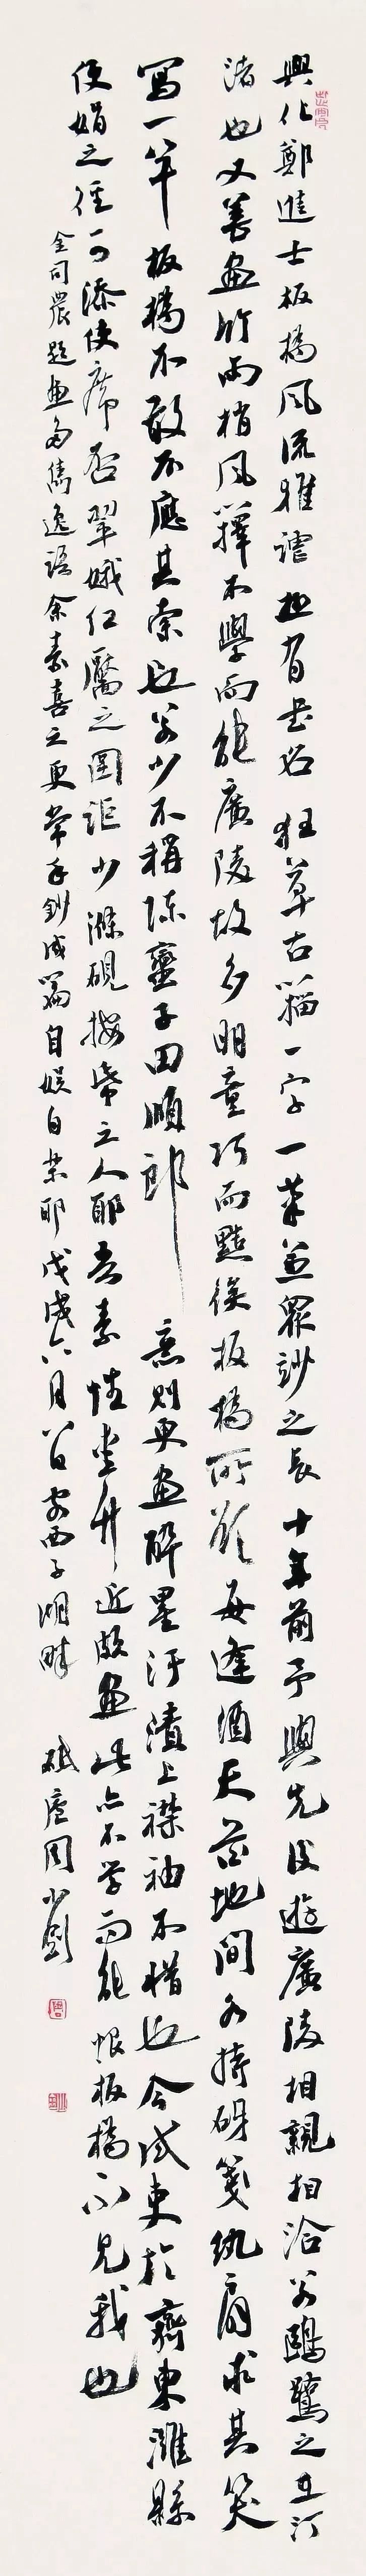 興化鄭進士板橋風流雅謔極有書名狂草古籀一字一筆兼眾妙之長十年前予與先後遊廣陵相親相洽若鷗鷺之在汀
渚也又善畫竹雨梢風籜不學而能廣陵故多明童巧而黠俟板橋所欲每逢酒天花地間各持砑箋紈扇求其笑
寫一竿板橋不敢不應其索也若少不稱陳蠻子田順郎意則更畫醉墨汙漬上襟袖不惜也今試吏於齊東濰縣
便娟之徑可添便席否翠娥紅靨之圍詎少滌硯按紙之人耶吾素性愛竹近頗畫此亦不學而能恨板橋不見我也
金司農題畫多雋逸語余素喜之更常手鈔成篇自娛自樂耶戊戌六月八日客西子湖畔 砥廬周小劉